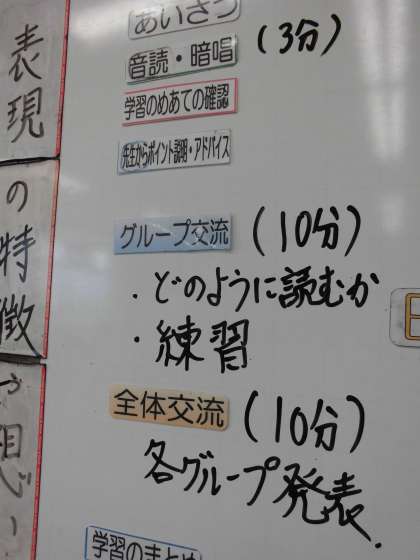 あいさつ
音読・暗唱 (3分)
学習のめあての確認
先生からポイント説明・アドバイス
グループ交流 (10分)
・どのように読むか
・練習
全体交流 (10分)
各グループ発表
学習のまとめ
表現
の特徴